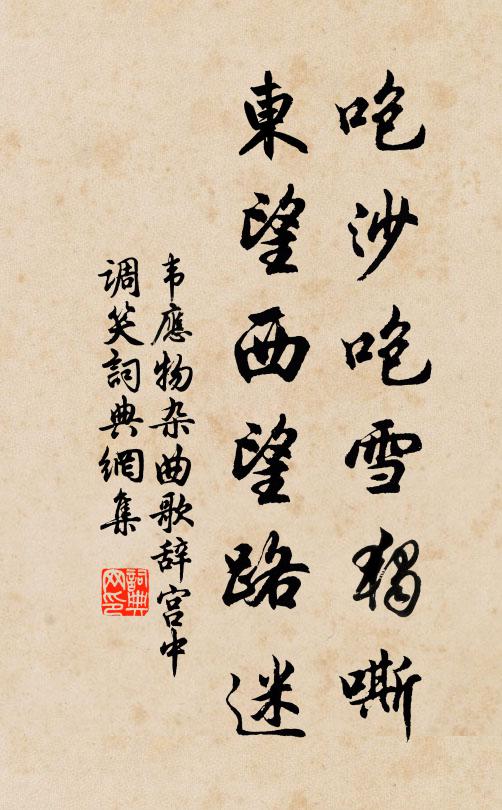 咆沙咆雪獨嘶
東望西望路迷
韦應物杂曲歌辞宫中
调笑詞典網集
詞典
网印